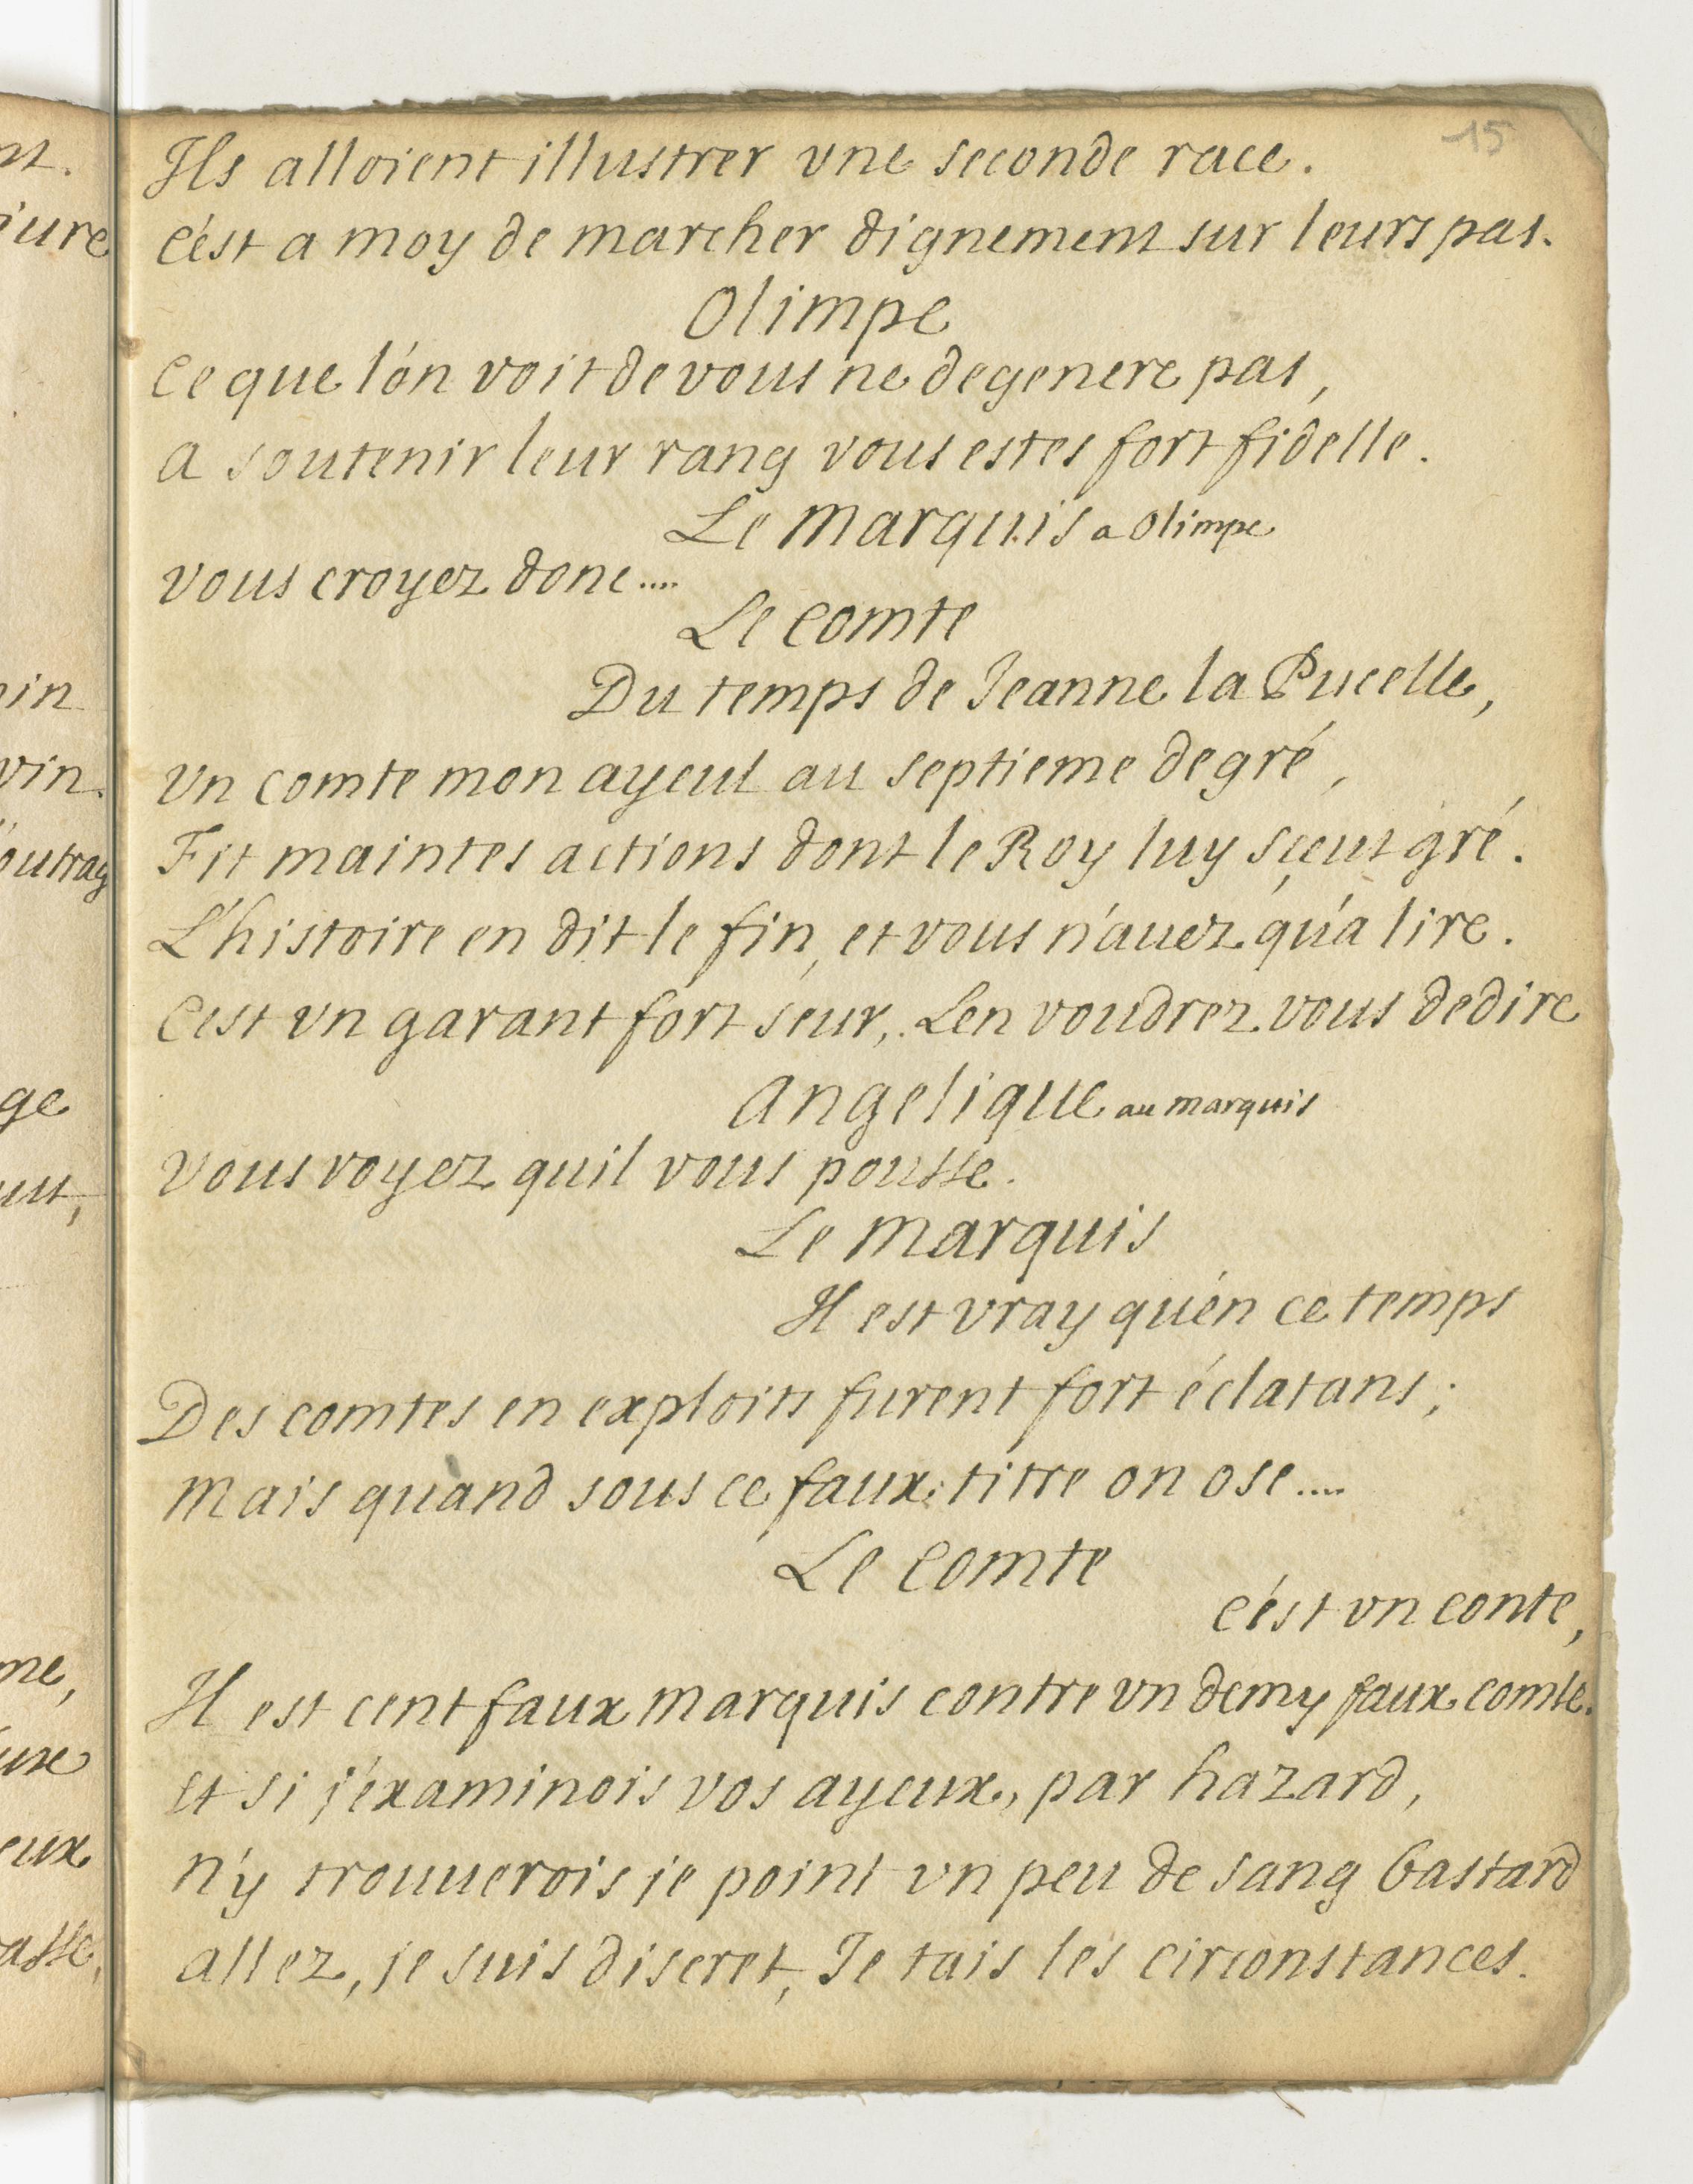 15
Ils alloient illustrer vne seconde race.
c'est a moy de marcher dignement sur leurs pas.
Olimpe
ce que l'on voit de vous ne degenere pas,
a soutenir leur rang vous estes fort fidelle.
Le marquis a olimpe
vous croyez donc....
Le comte
Du temps de Jeanne la Pucelle,
vn comte mon ayeul au septieme degré,
Fit maintes actions dont le Roy luy sçeut gré.
L'histoire en dit le fin, et vous n'auez qu'a lire.
C'est vn garant fort seur, Len voudrez vous dedire
angelique au marquis
vous voyez quil vous pousse.
Le marquis
Il est vray qu'en ce temps
Des comtes en exploits furent fort éclatans;
mais quand sous ce faux titre on ose....
Le comte
c'est vn conte,
Il est cent faux marquis contre vn demy faux comte.
et si j'examinois vos ayeux, par hazard,
n'y trouuerois je point vn peu de sang bastard
allez, je suis discret, Je tais les circonstances.